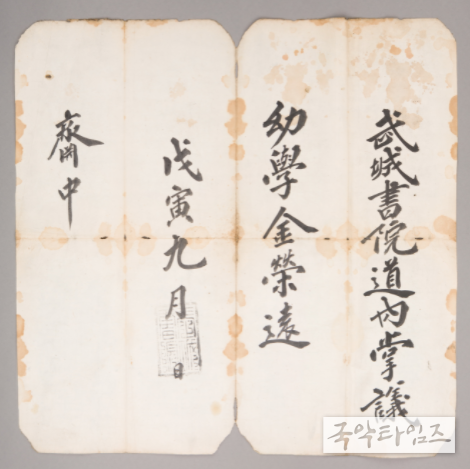 武城書院道內掌議
幼學金榮遠
戊寅九月 日
齋中
국악타임즈